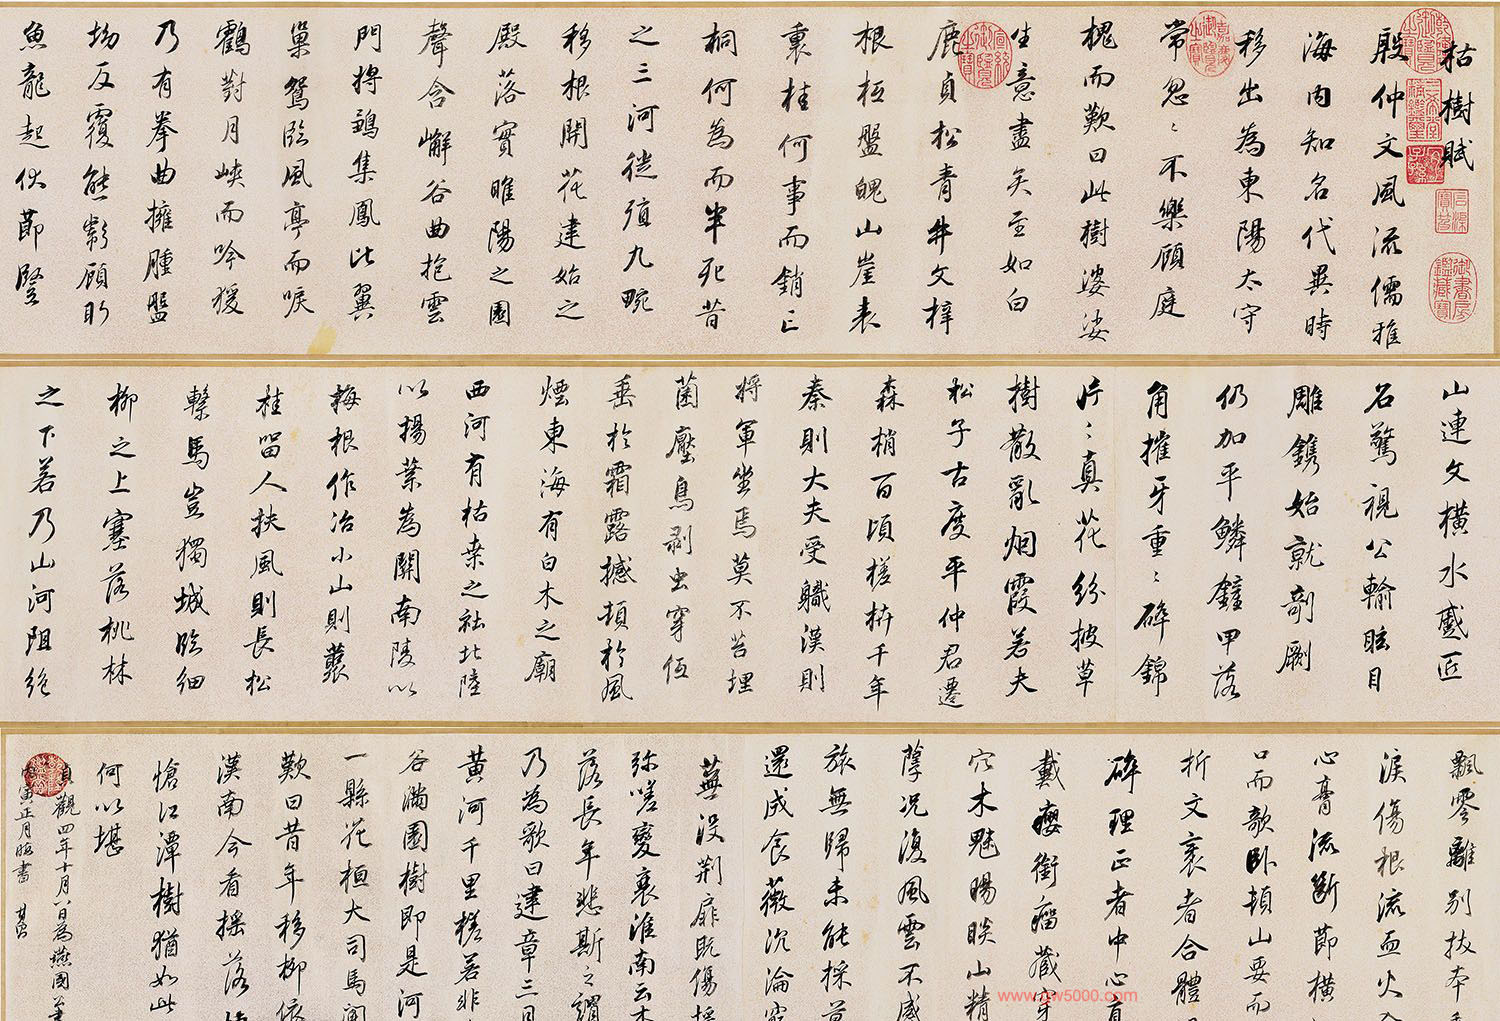 枯樹賦
殷仲文風流儒雅
海內知名代異時
移出為東陽太守
常忽〻不樂顧庭
槐而歎曰此樹婆娑
生意盡矣至如白
鹿貞松青牛文梓
根柢盤魄山崖表
裏桂何事而銷亡
桐何為而半死昔
之三河徙殖九畹
移根開花建始之
殿落實睢陽之園
聲含嶰谷曲抱雲
門將鶵集鳳比翼
巢鴛臨風亭而唳
鶴對月峽而吟猨
乃有拳曲擁腫盤
坳反覆熊彪顧盼
魚龍起伏節豎
山連文橫水蹙匠
石驚視公輸眩目
雕鐫始就剞劂
仍加平鱗鏟甲落
角摧牙重〻碎錦
片〻真花紛披草
樹散亂烟霞若夫
松子古度平仲君遷
森梢百頃槎枿千年
秦則大夫受職漢則
將軍坐焉莫不苔埋
菌壓鳥剥虫穿低
垂於霜露撼頓於風
煙東海有白木之廟
西河有枯桑之社北陸
以揚葉為關南陵以
梅根作冶小山則叢
桂留人扶風則長松
繫馬豈獨城臨細
柳之上塞落桃林
之下若乃山河阻絶
飄零離別拔本
淚傷根流血火入
心膏流斷節橫
口而欹卧頓山要而
折文裹者合體
碎理正者中心直
戴癭銜瘤藏穿
穴木魅賜睒山精
蔭况復風雲不感
旅無歸未能採葛
還成食薇沉淪窮
蕪没荆扉既傷摇
弥嗟變衰淮南云木
落長年悲斯之謂
乃為歌曰建章三月
黄河千里槎若非
谷滿園樹即是河
一縣花桓大司馬聞
歎曰昔年移柳依
漢南今看搖落悽
愴江潭樹猶如此
何以堪
貞觀四年十月八日為燕國
寅正月臨書
www.gw5000.com